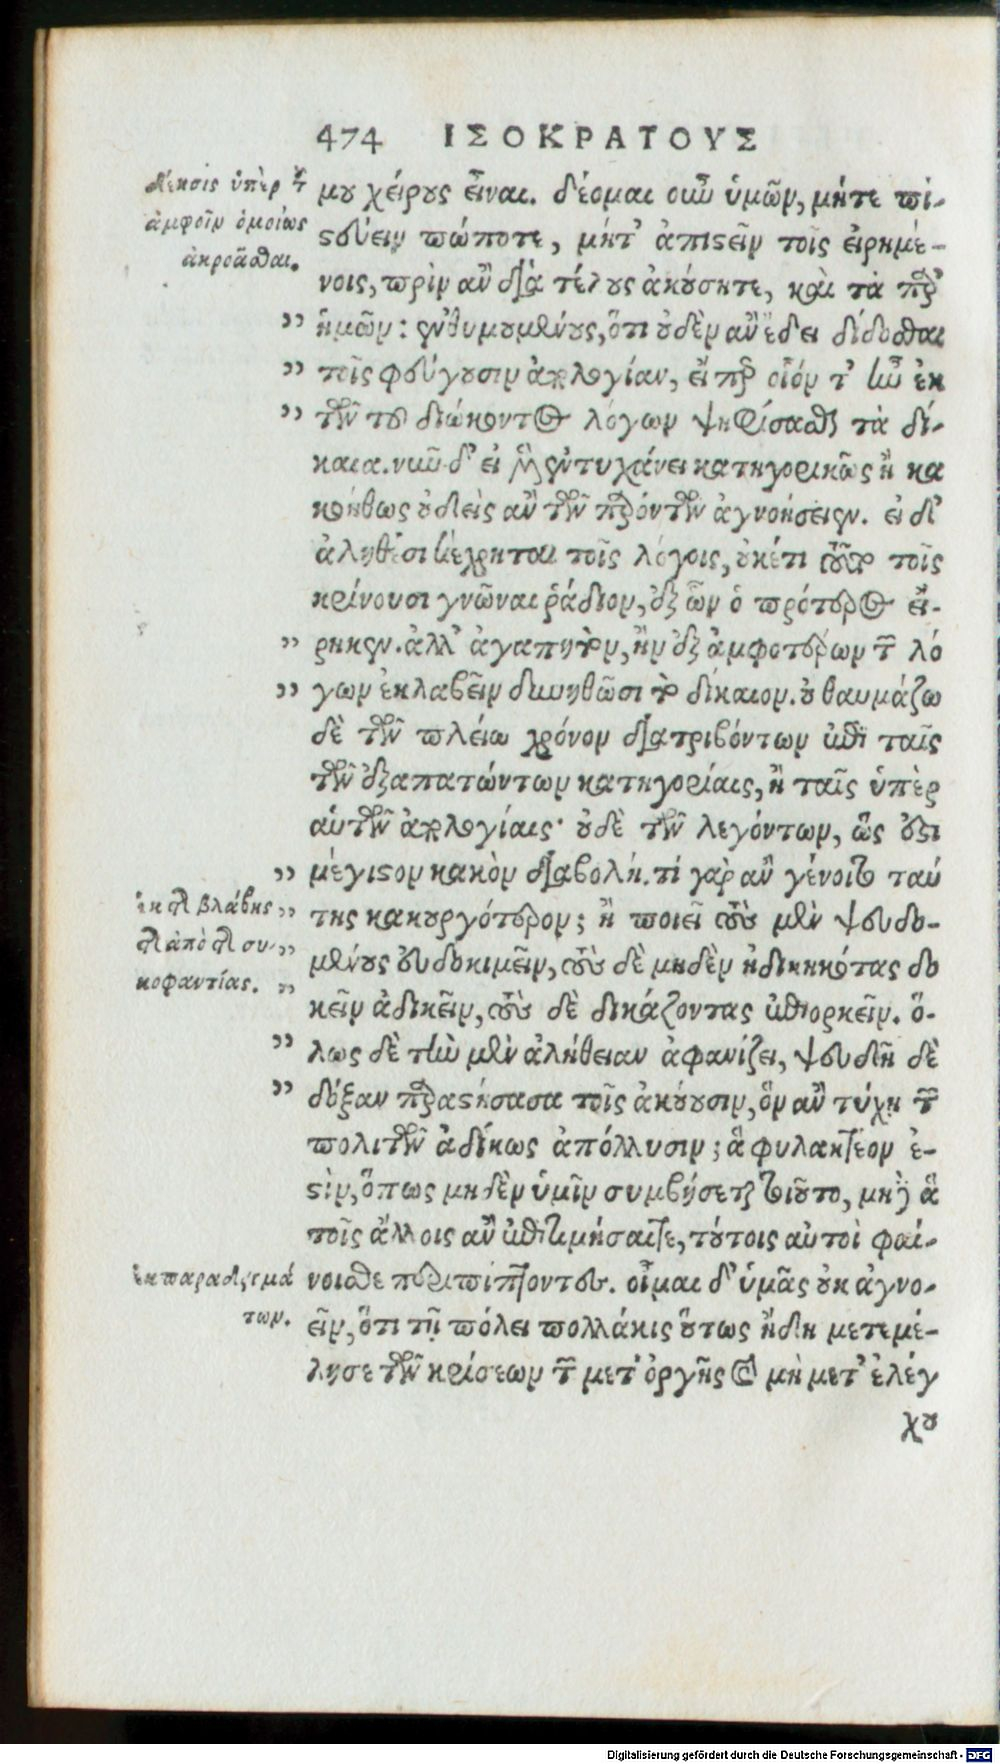 474 ΙΣΟΚΡΑΤΟΥΣ
δέησις ὑπὲρ τοῦ
ἀμφοῖν ὁμοίως
ἀκροᾶσθαι.
μου χείρους εἶναι. δέομαι οὖν ὑμῶν, μήτε πι-
στεύειν πώποτε, μήτ' ἀπιστεῖν τοῖς εἰρημέ-
νοις, πρὶν ἂν διὰ τέλους ἀκούσητε, καὶ τὰ παρ'
ἡμῶν: ἐνθυμουμένους, ὅτι οὐδὲν ἂν ἔδει δίδοσθαι
τοῖς φεύγουσιν ἀπολογίαν, εἴπερ οἷόν τ' ἦν ἐκ
τῶν τοῦ διώκοντος λόγων ψηφίσασθαι τὰ δί-
καια. νῦν δ' εἰ μὲν ἐντυχάνει κατηγορικῶς ἢ κα
κοήθως οὐδεὶς ἂν τῶν παρόντων ἀγνοήσειεν. εἰ δ'
ἀληθέσι κέχρηται τοῖς λόγοις, οὐκέτι τοῦτο τοῖς
κρίνουσι γνῶναι ῥάδιον, ἐξ ὧν ὁ πρότερος εἴ-
ρηκεν. ἀλλ' ἀγαπητὸν, ἢν ἐξ ἀμφοτέρων τῶν λό
γων ἐκλαβεῖν δυνηθῶσι τὸ δίκαιον. οὐ θαυμάζω
δὲ τῶν πλείω χρόνον διατριβόντων ἐπὶ ταῖς
τῶν ἐξαπατώντων κατηγορίαις, ἢ ταῖς ὑπὲρ
αὑτῶν ἀπολογίαις· οὐδὲ τῶν λεγόντων, ὡς ἔστι
μέγιστον κακὸν διαβολή. τί γὰρ ἂν γένοιτο ταύ
ἐκ τῆς βλάβης
τῆς ἀπὸ τῆς συ-
κοφαντίας.
της κακουργότερον; ἢ ποιεῖ τοὺς μὲν ψευδο-
μένους εὐδοκιμεῖν, τοὺς δὲ μηδὲν ἠδικηκότας δο
κεῖν ἀδικεῖν, τοὺς δὲ δικάζοντας ἐπιορκεῖν. ὅ-
λως δὲ τὴν μὲν ἀλήθειαν ἀφανίζει, ψευδῆ δὲ
δόξαν παραστήσασα τοῖς ἀκούουσιν, ὃν ἂν τύχῃ τῶν
πολιτῶν ἀδίκως ἀπόλλυσιν; ἃ φυλακτέον ἐ-
στὶν, ὅπως μηδὲν ὑμῖν συμβήσεται τοιοῦτο, μηδ' ἃ
τοῖς ἄλλοις ἂν ἐπιτιμήσαιτε, τούτοις αὐτοὶ φαί-
ἐκ παραδειγμά
των.
νοισθε περιπίπτοντες. οἶμαι δ' ὑμᾶς οὐκ ἀγνο-
εῖν, ὅτι τῇ πόλει πολλάκις οὕτως ἤδη μετεμέ-
λησε τῶν κρίσεων τῶν μετ' ὀργῆς καὶ μὴ μετ' ἐλέγ
χου
Digitalisierung gefördert durch die Deutsche Forschungsgemeinschaft - DFG